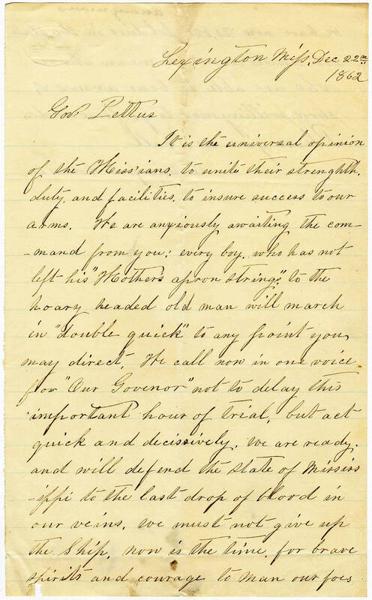 Lexington Miss, Dec 22nd
1862
Gov Pettus
It is the universal opinion
of the Missians, to unite their strenghth,
duty, and facilities, to insure success to our
arms. We are anxiously awaiting the com-
-mand from you; every boy, who has not
left his "Mothers apron strings," to the
hoary headed old man will march
in "double quick" to any point you
may direct. We call now in one voice
for "Our Govenor" not to delay this
important hour of trial, but act
quick and decissively. We are ready,
and will defend the state of Missis
-ippi to the last drop of blood in
our veins. We must not give up
the Ship, now is the time, for brave
spirits and courage to man our foes